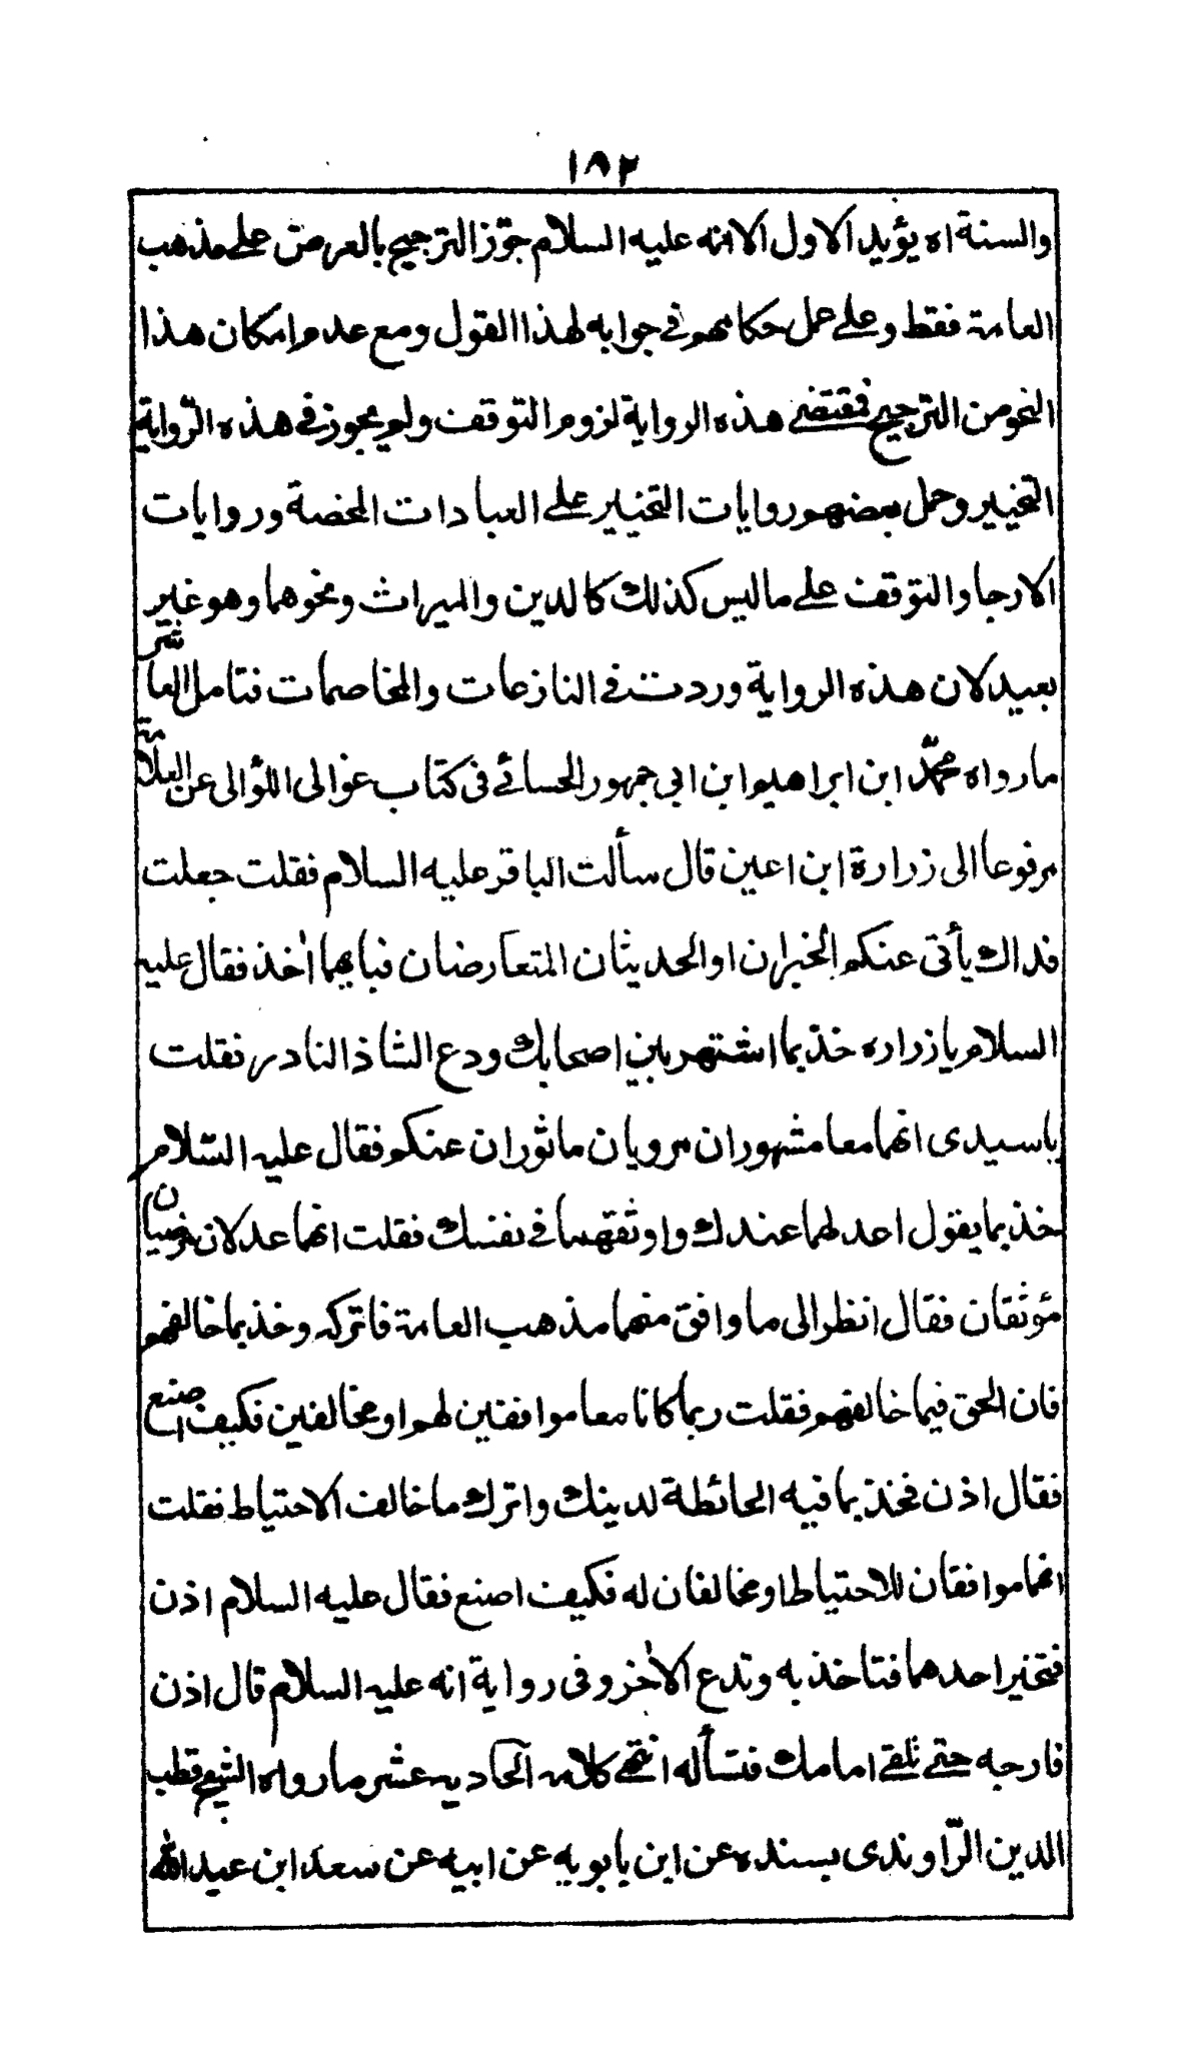 ١٨٢
والسنة اه يؤيد الاول الا انه عليه السلام جوّز الترجيح بالعرض على مذهب
العامة فقط وعلى عمل حكامهم في جوابه لهذا القول ومع عدم امكان هذا
النحو من الترجيح فمقتضى هذه الرواية لزوم التوقف ولم يجوز في هذه الرّواية
التخيير وحمل بعضهم روايات التخيير على العبادات المحضة وروايات
الارجا والتوقف على ما ليس كذلك كالدين والميراث ونحوهما وهو غير
بعيد لان هذه الرواية وردت في النازعات والمخاصمات فتامل العاشر
ما رواه محمّد ابن ابراهيم ابن ابي جمهور الحسائي في كتاب غوالى اللؤالى عن العلامة
مرفوعا الى زرارة ابن اعين قال سألت الباقر عليه السلام فقلت جعلت
فداك يأتى عنكم الخبران او الحديثان المتعارضان فبايهما اٰخذ فقال عليه
السلام يا زراره خذ بما اشتهر بين اصحابك ودع الشاذ النادر فقلت
يا سيدى انهما معا مشهوران مرويان ماثوران عنكم فقال عليه السّلام
خذ بما يقول اعدلهما عندك واوثقهما في نفسك فقلت انهما عدلان مرضيان
مؤثقان فقال انظر الى ما وافق منهما مذهب العامة فاتركه وخذ بما خالفهم
فان الحق فيما خالفهم فقلت ربما كانا معا موافقين لهم او مخالفين فكيف اصنع
فقال اذن فخذ بما فيه الحائطة لدينك واترك ما خالف الاحتياط فقلت
انهما موافقان للاحتياط او مخالفان له فكيف اصنع فقال عليه السلام اذن
فتخير احدهما فتاخذ به وتدع الاٰخر وفى رواية انه عليه السلام قال اذن
فارجه حتى تلقى امامك فتسأله انتهى كلامه الحاديه عشر ما رواه الشيخ قطب
الدين الرّاوندى بسنده عن ابن بابويه عن ابيه عن سعد ابن عبد الله